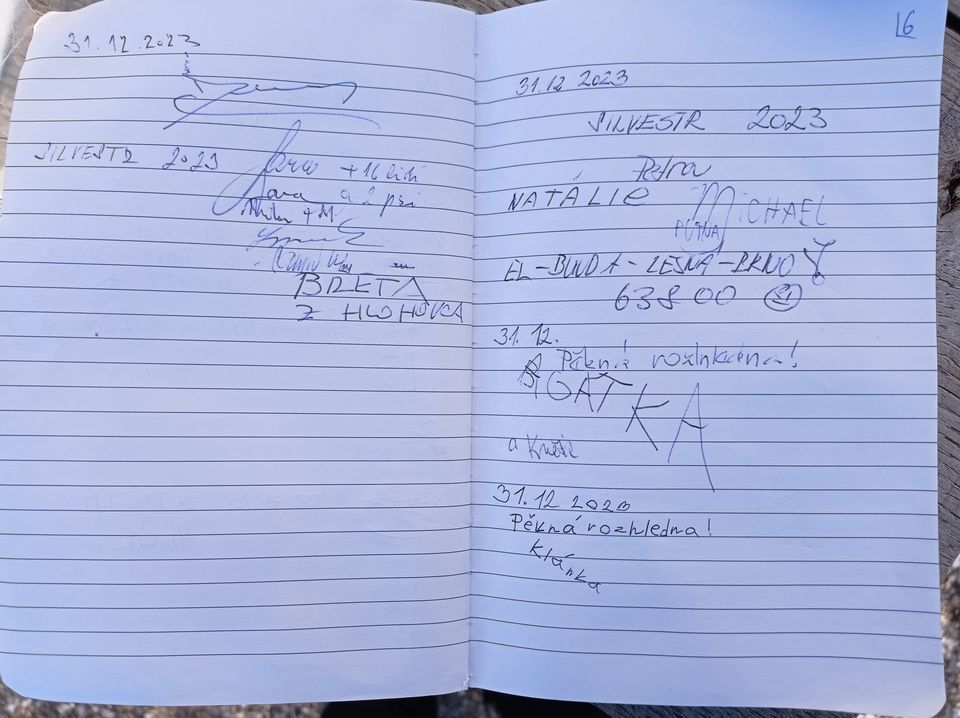 31.12.2023
SILVESTR 2023
+16 lidí
a 2 psi
+ M.
BRETA
Z HLOHOVCA
16
31.12 2023
SILVESTR 2023
Petra
NATÁLIE
MICHAEL
EL-BUNDA-LESNÁ-BRNO
638 00
31.12.
Pěkná rozlnkidna!
AGATKA
a
31.12 2023
Pěkná rozhledna!
Klánka